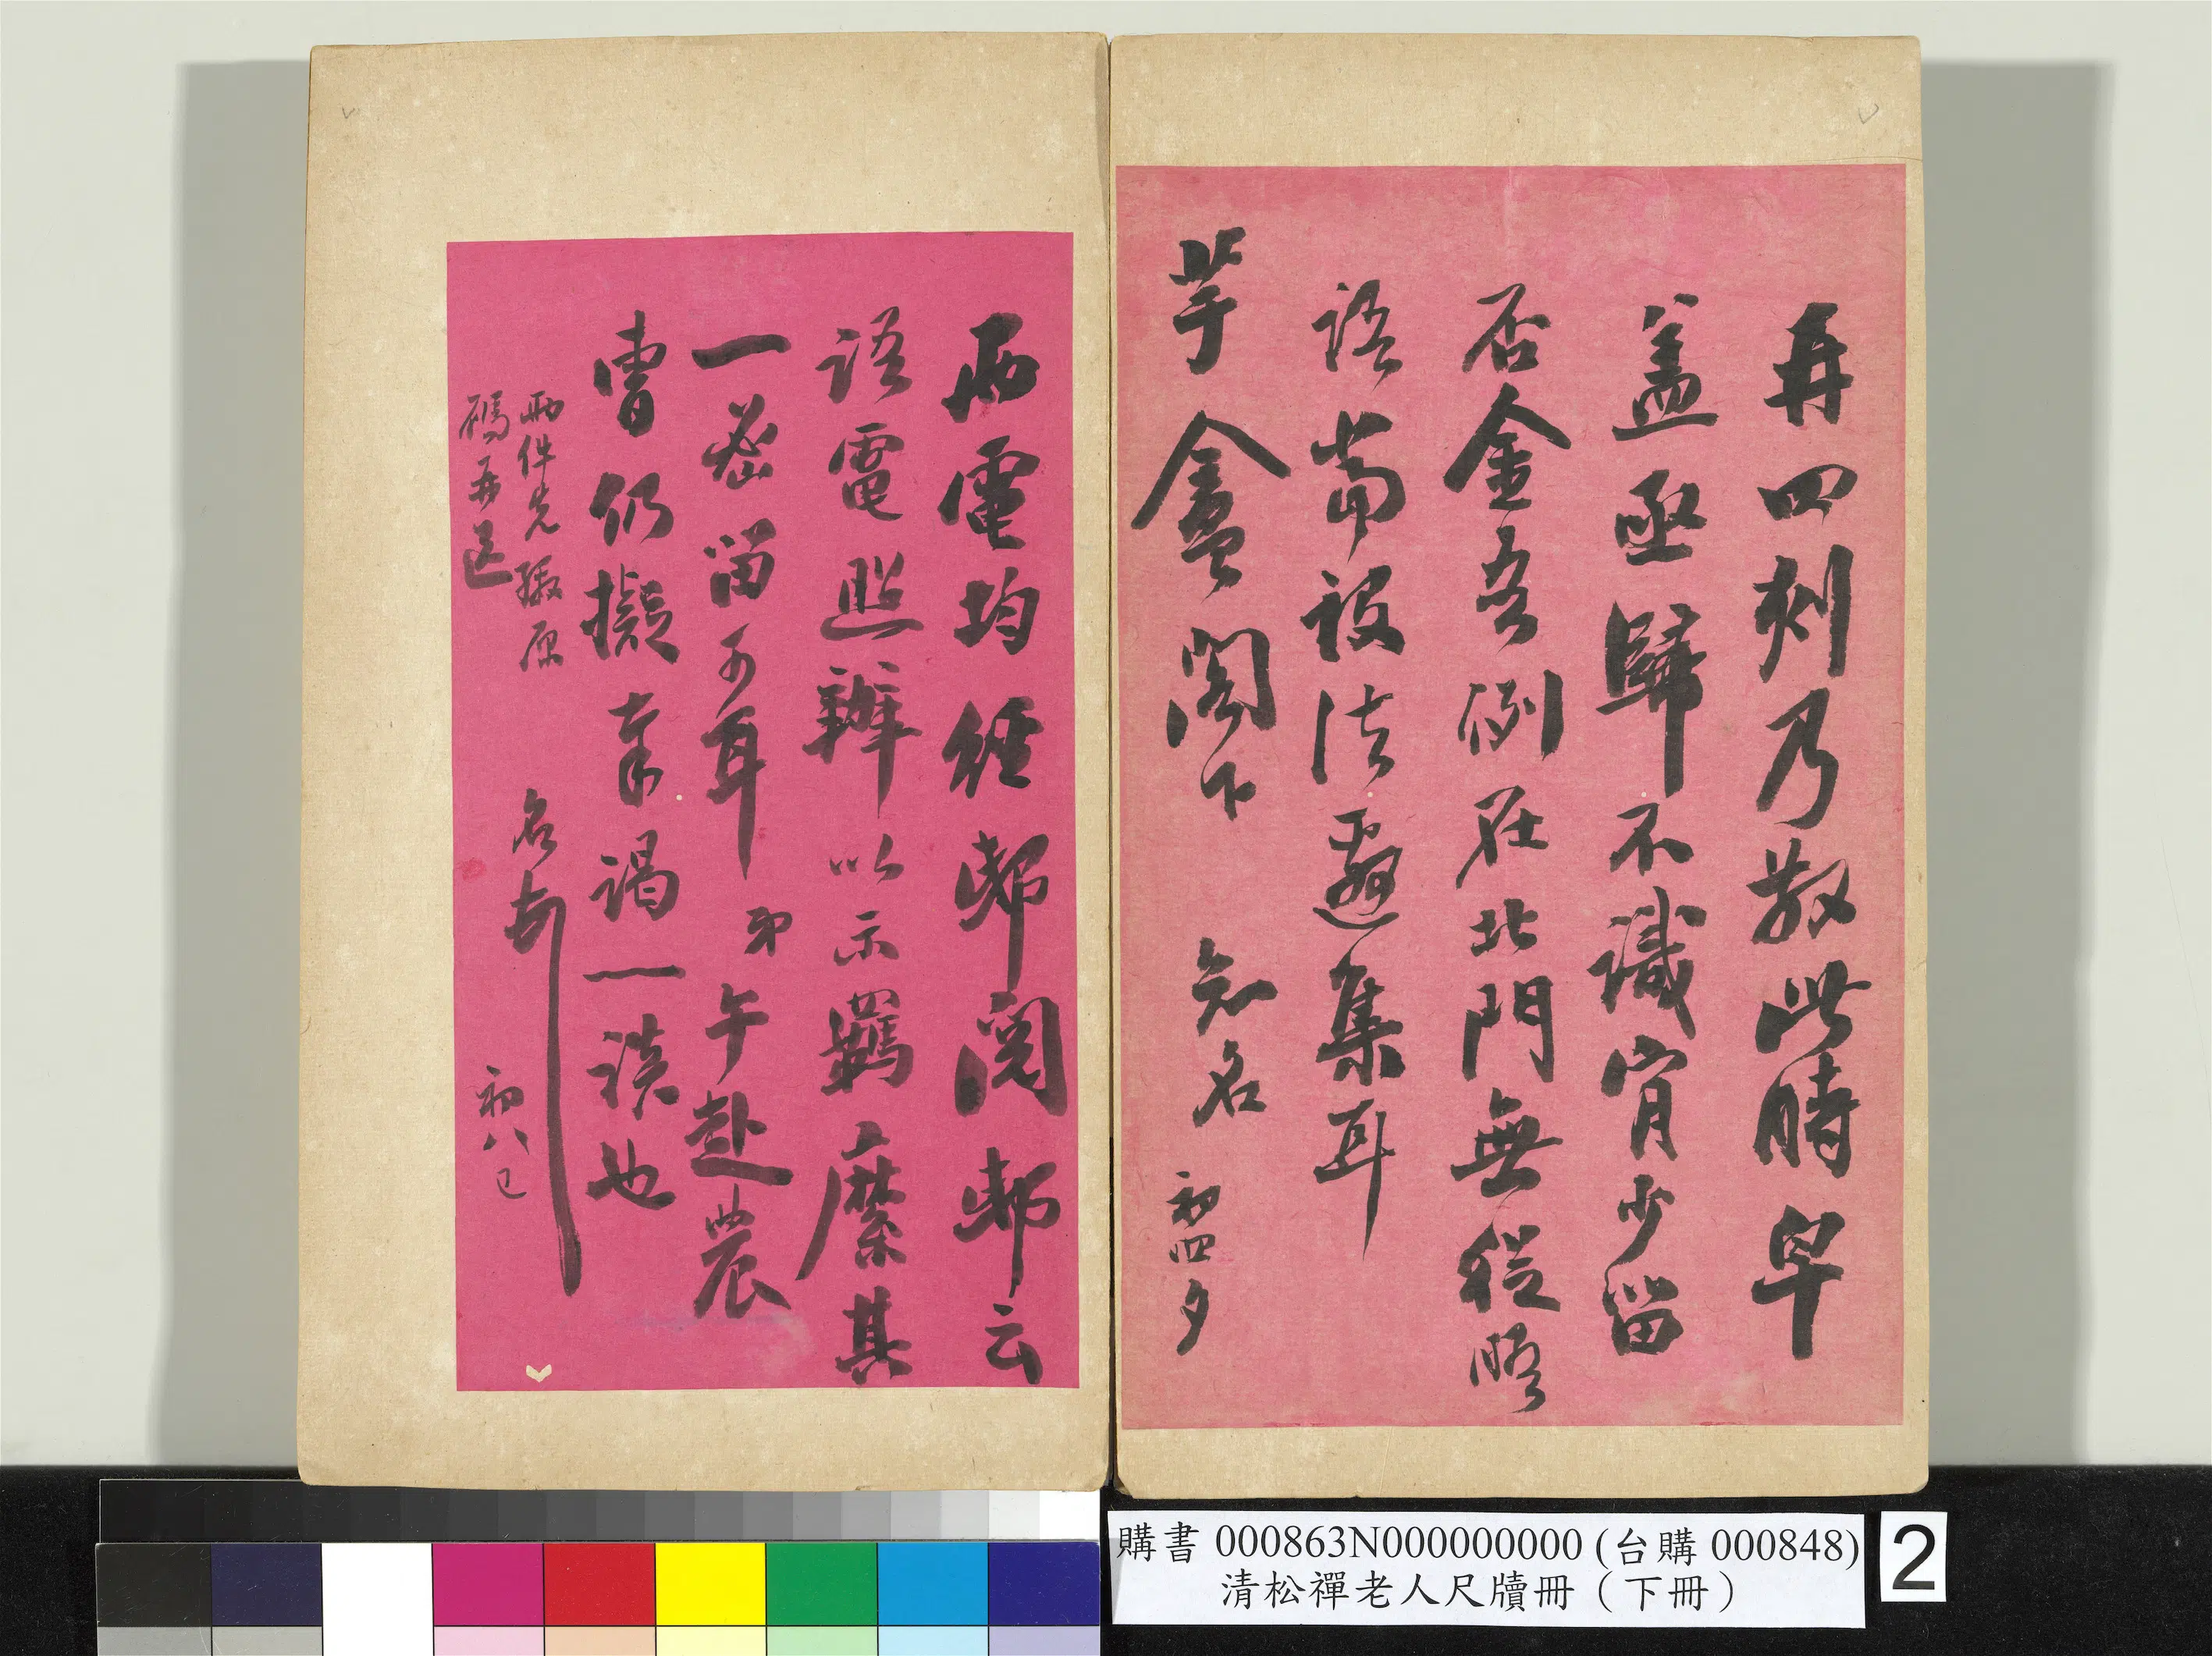 再四刻乃散此時早
蓋亟歸不識宵少留
否金吾例在北門無從晤
語當設法邂集耳
芋盦閣下 知名 初四夕
兩電均經邸閱邸云
語電照辦以示羈縻其
一密留可耳 弟午赴農
曹仍擬奉謁一談也
兩件先繳原
碼再送
名頓 初八巳
購書 000863N000000000 (台購 000848)
清松禪老人尺牘冊（下冊）
2